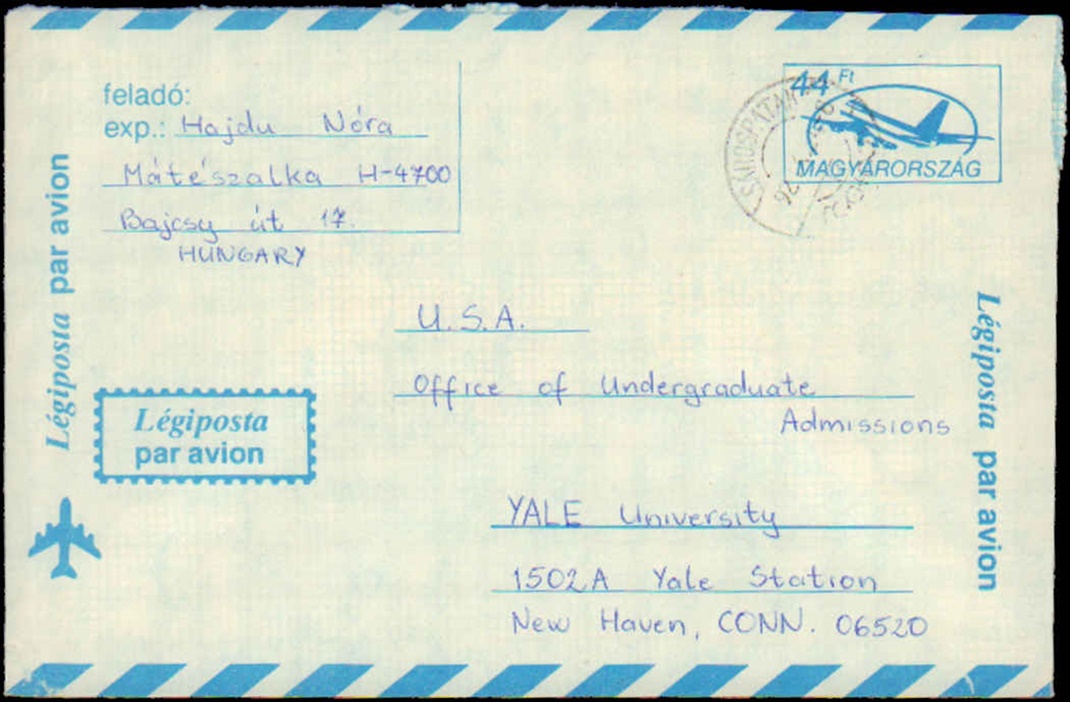 feladó:
exp.: Hajdu Nóra
Mátészalka H-4700
Bajcsy út 17.
HUNGARY
44 Ft
MAGYARORSZÁG
Légiposta par avion
U.S.A.
Office of Undergraduate
Admissions
Légiposta
par avion
YALE University
1502A Yale Station
New Haven, CONN. 06520
Légiposta par avion